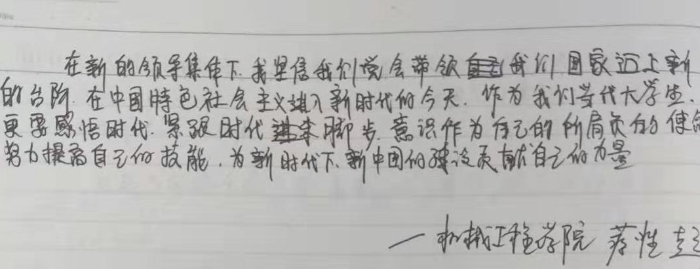 在新的领导集体下,我坚信我们党会带领我们国家迈上新
的台阶.在中国特色社会主义进入新时代的今天.作为我们当代大学生、
更要感悟时代.紧跟时代脚步.意识作为自己的所肩负的使命
努力提高自己的技能.为新时代下.新中国的建设贡献自己的力量
一机械工程学院 蒋性